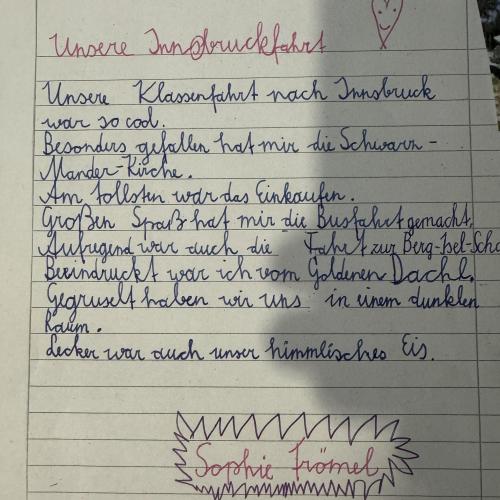 Unsere Innsbruckfahrt
Unsere Klassenfahrt nach Innsbruck
war so cool.
Besonders gefallen hat mir die Schwarz-
Mander-Kirche.
Am tollsten war das Einkaufen.
Großen Spaß hat mir die Busfahrt gemacht.
Aufregend war auch die Fahrt zur Berg-Isel-Scha
Beeindruckt war ich vom Goldenen Dachl.
Gegruselt haben wir uns in einem dunklen
Raum.
Lecker war auch unser himmlisches Eis.
Sophie Frömel